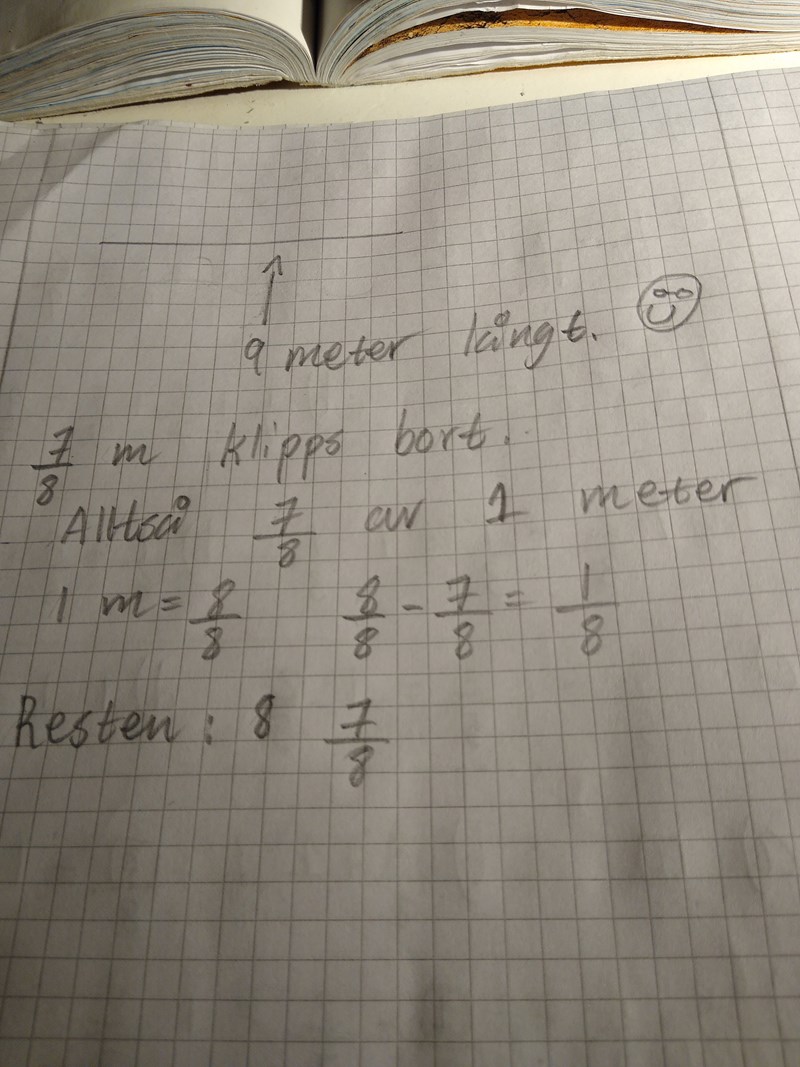 9 meter långt.
7/8 m klipps bort.
Alltså 7/8 av 1 meter
1 m = 8/8 8/8 - 7/8 = 1/8
Resten: 8 7/8